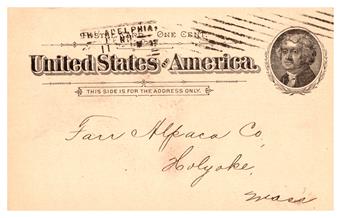 PHILADELPHIA
POSTAL CARD ONE CENT.
United States of America.
THIS SIDE IS FOR THE ADDRESS ONLY.
Farr Alpaca Co,
Holyoke,
Mass